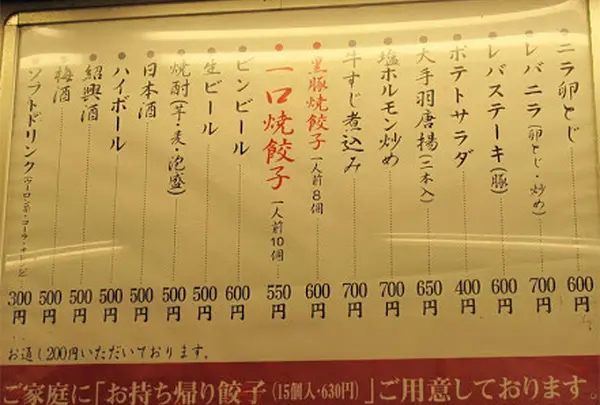 ニラ卵とじ 600円
レバニラ(卵とじ・炒め) 700円
レバステーキ(豚) 600円
ポテトサラダ 400円
大手羽唐揚(二本入) 650円
塩ホルモン炒め 700円
牛すじ煮込み 700円
黒豚焼餃子 一人前8個 600円
一口焼餃子 一人前10個 550円
ビンビール 600円
生ビール 500円
焼酎(芋・麦・泡盛) 500円
日本酒 500円
ハイボール 500円
紹興酒 500円
梅酒 500円
ソフトドリンク(ウーロン茶・コーラ・オレンジ) 300円
お通し200円いただいております。
ご家庭に「お持ち帰り餃子(15個入・630円)」ご用意しております。